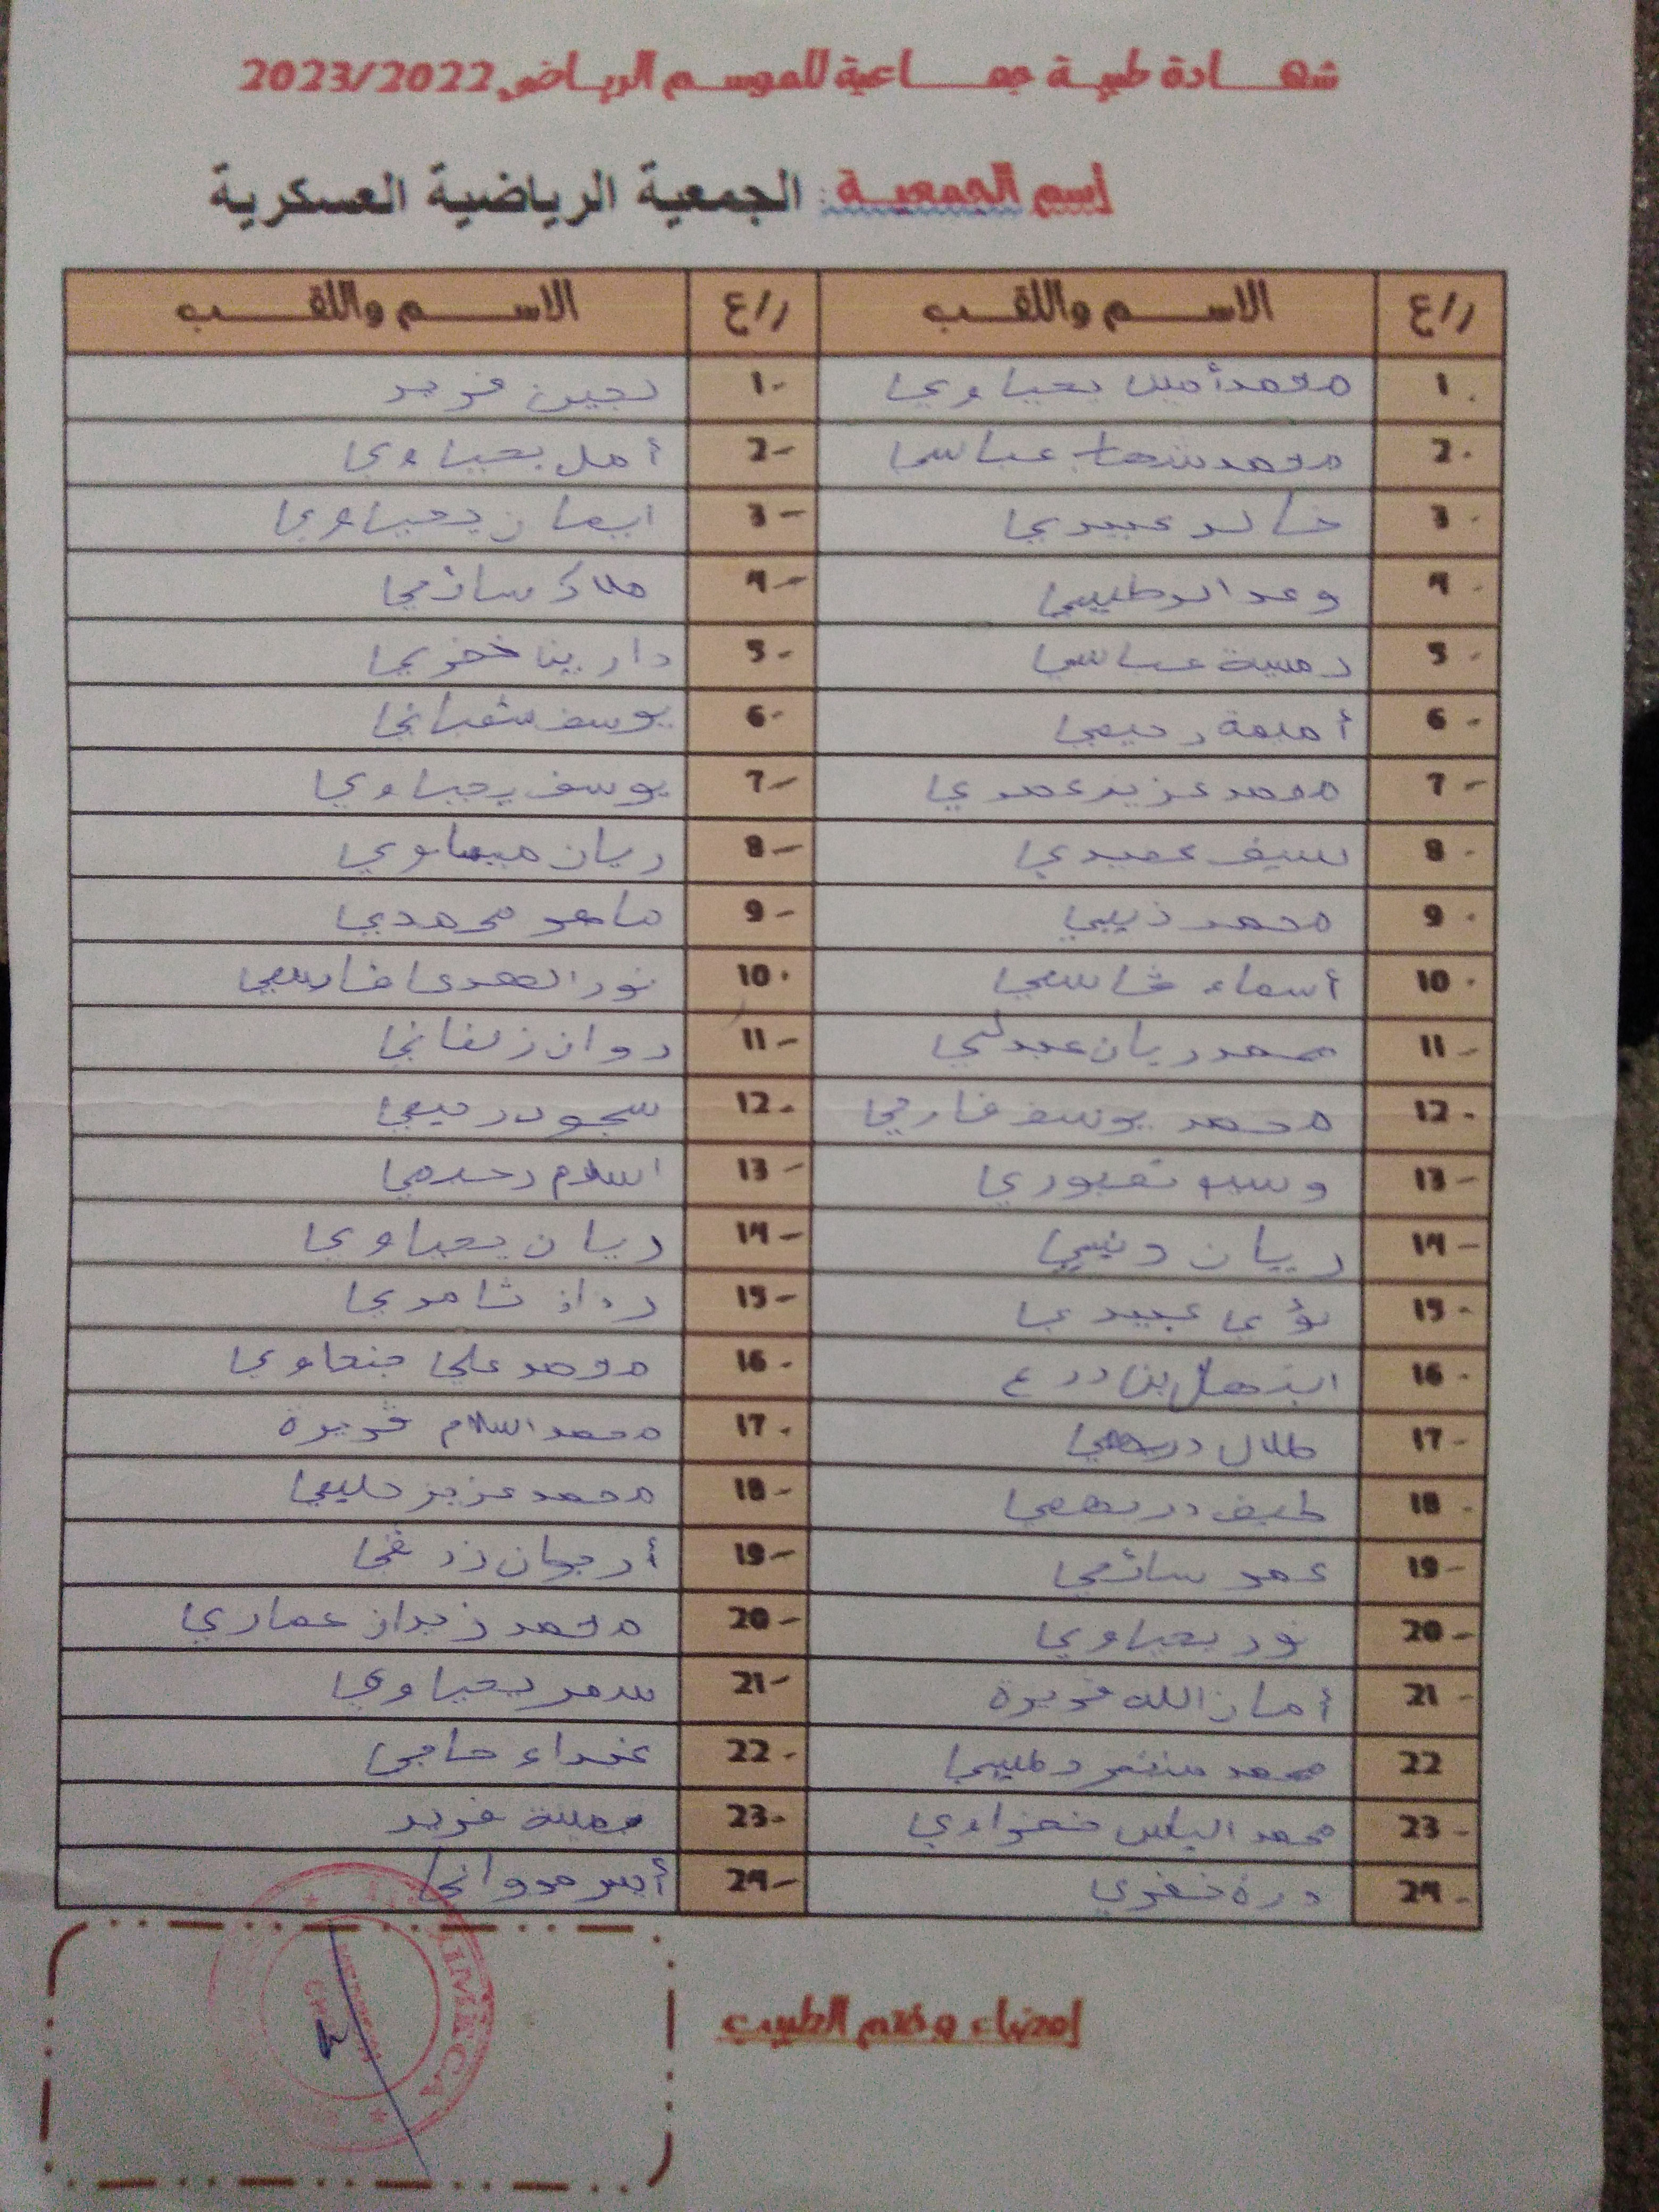 شهادة طبية جماعية للموسم الرياضي 2023/2022
إسم الجمعية : الجمعية الرياضية العسكرية
ر/ع الاسم واللقب ر/ع الاسم واللقب
1. محمد أمين يحياوي 1- لجين فريد
2. محمد عباسي 2- أمل يحياوي
3. خالد عبيدي 3- ايمان يحياوي
4. وعد 4- ملاك
5. عباسي 5- دارين
6. أميمة رحيمي 6- يوسف شعباني
7- محمد عزيز عمري 7- يوسف يحياوي
8. سيف عبيدي 8- ريان
9. محمد ذيبي 9- ماهر محمدي
10. أسماء قاسمي 10. نور الهدى فارسي
11- محمد ريان عبدلي 11- روان زلفاني
12. محمد يوسف 12. سجود رحيمي
13- 13- اسلام
14- ريان 14- ريان يحياوي
15. لؤي عبيدي 15- تامري
16. ابتهال بن 16. محمد علي
17- طلال دريهمي 17. محمد اسلام قريرة
18. طيف دريهمي 18- محمد عزيز حليمي
19- عمر سائمي 19- أرجوان
20- نور يحياوي 20- محمد نزار عماري
21- أمان الله قريرة 21- سمر يحياوي
22 محمد منتصر 22. غفراء حاجي
23- محمد الياس نفزاوي 23- يمينة فريد
24. درة خفري 24- أيسر مرواني
إمضاء وختم الطبيب